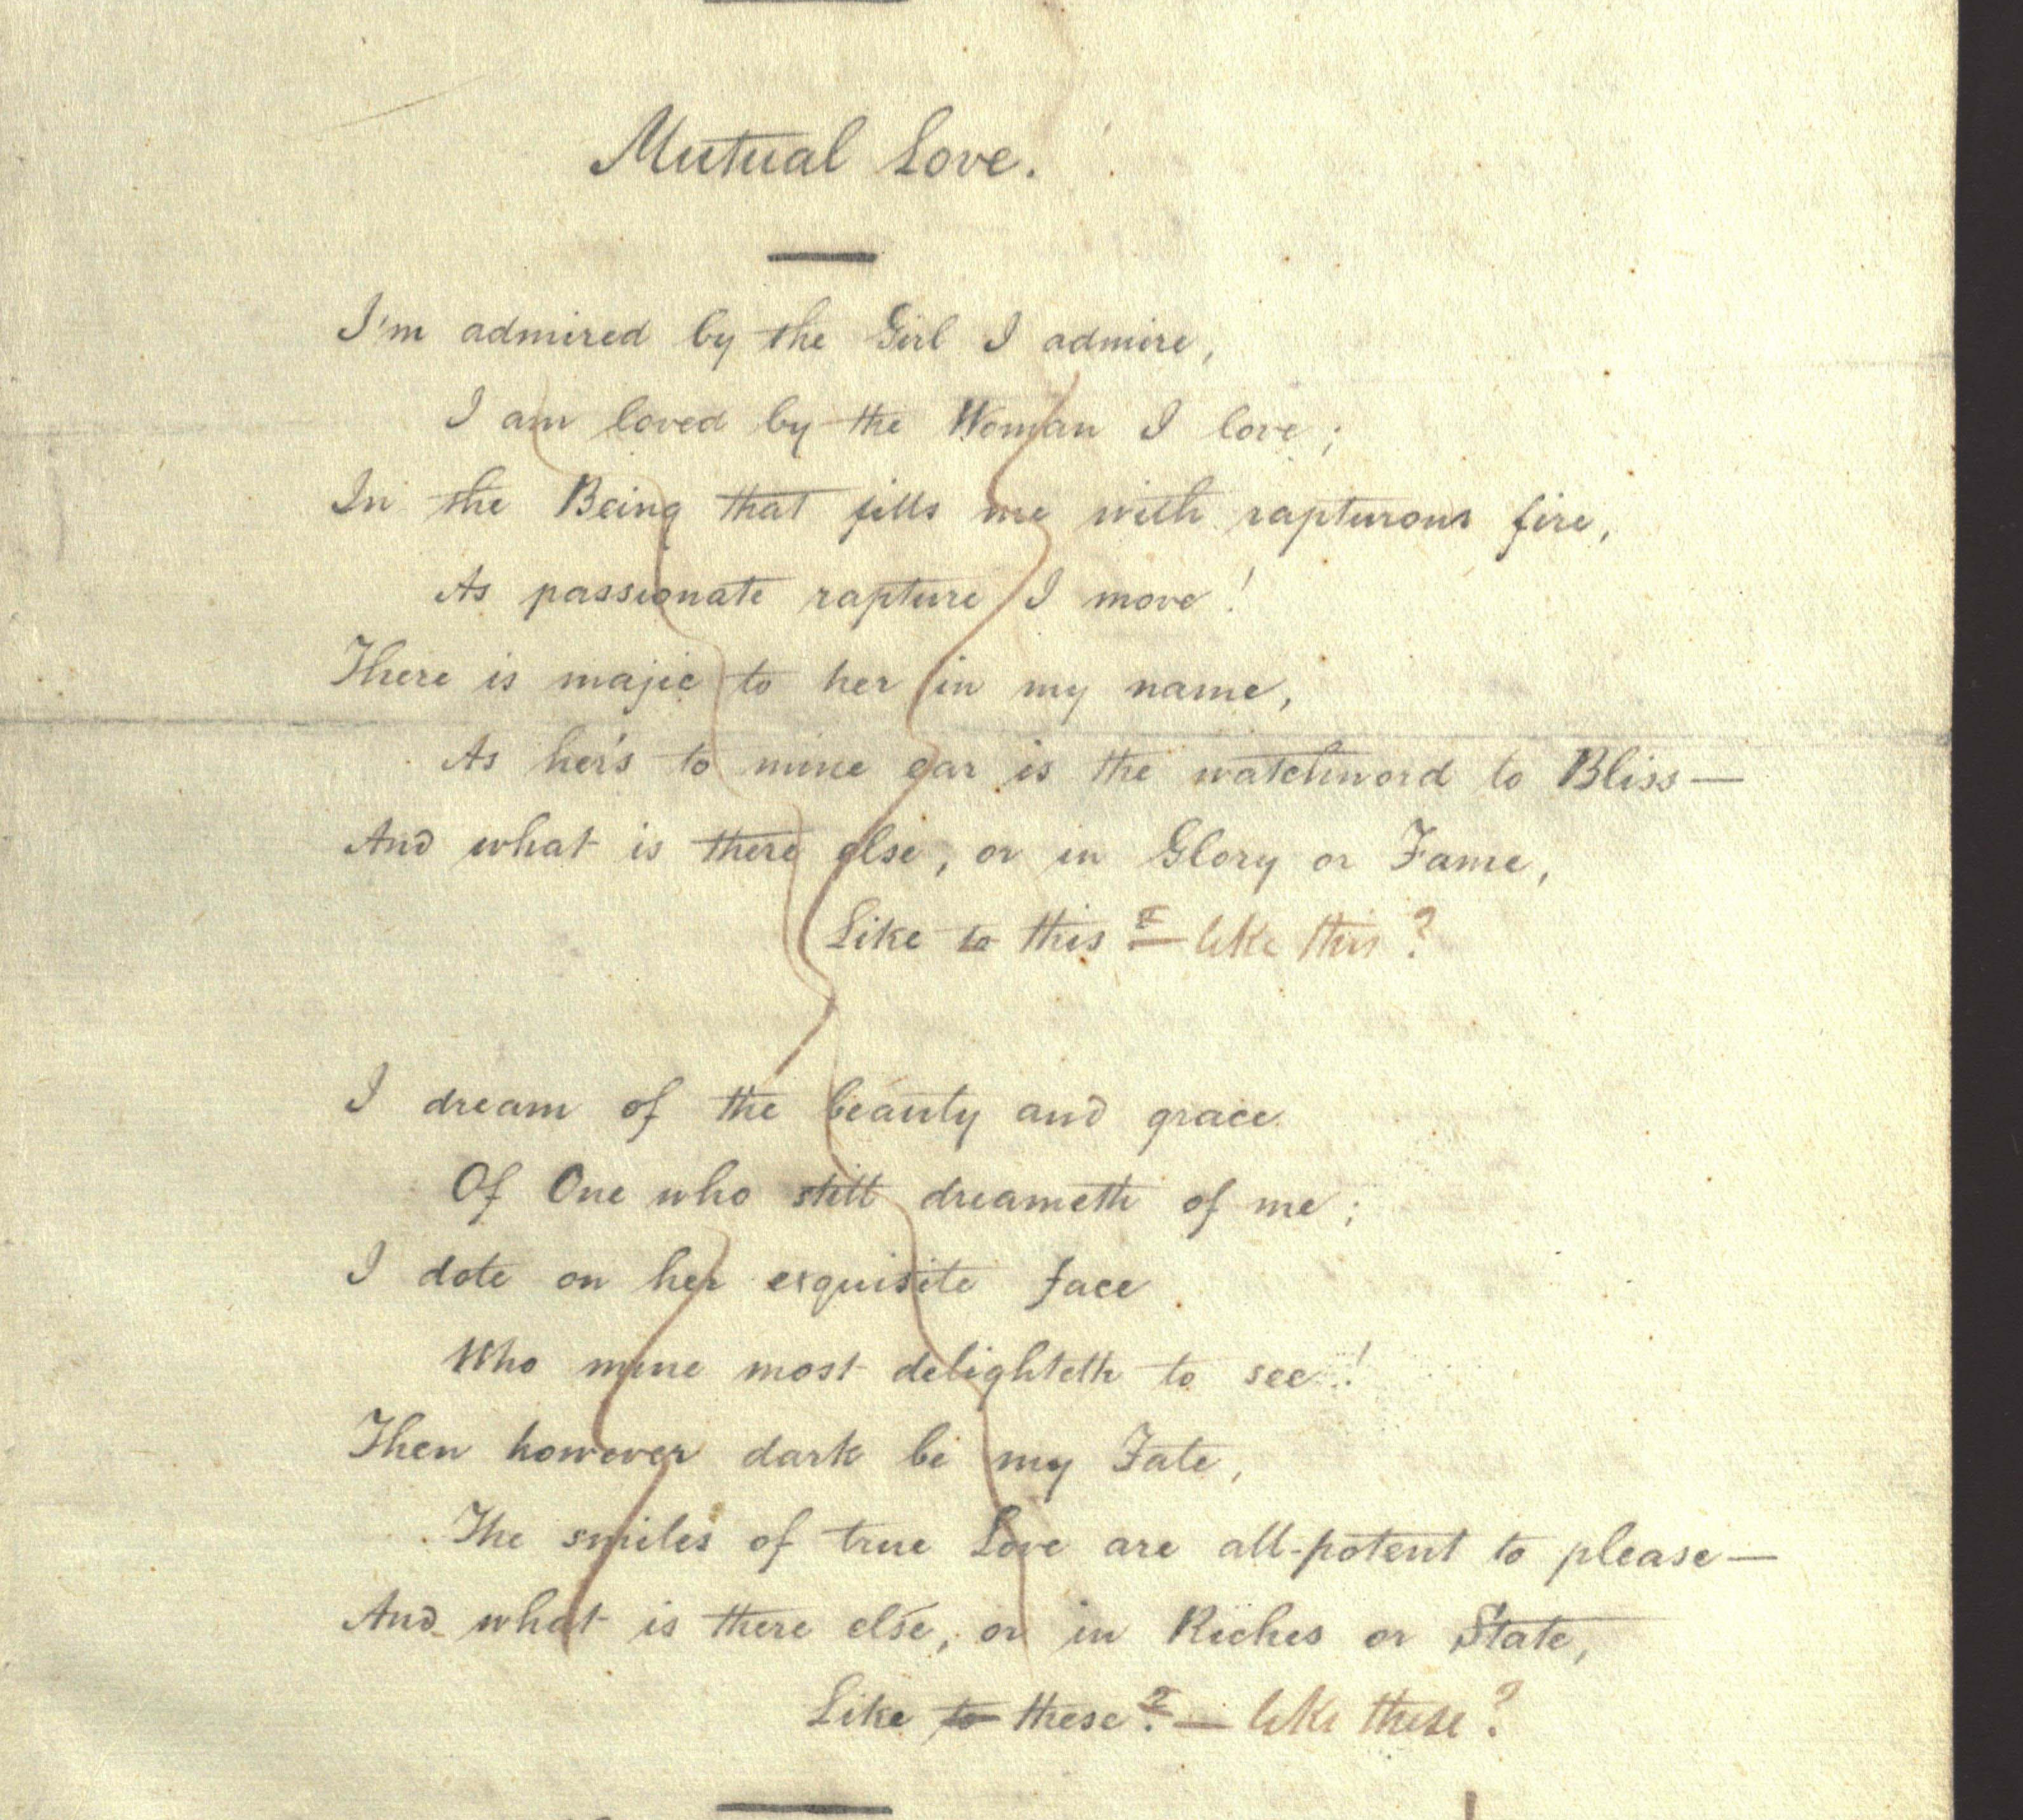 Mutual Love.
I'm admired by the Girl I admire,
I am loved by the Woman I love;
In the Being that fills me with rapturous fire,
As passionate rapture I move!
There is majic to her in my name,
As her's to mine ear is the watchword to Bliss—
And what is there else, or in Glory or Fame,
Like to this? — like this?
I dream of the beauty and grace
Of One who still dreameth of me;
I dote on her exquisite face
Who mine most delighteth to see!
Then however dark be my Fate,
The smiles of true Love are all-potent to please—
And what is there else, or in Riches or State,
Like to these? — like these?